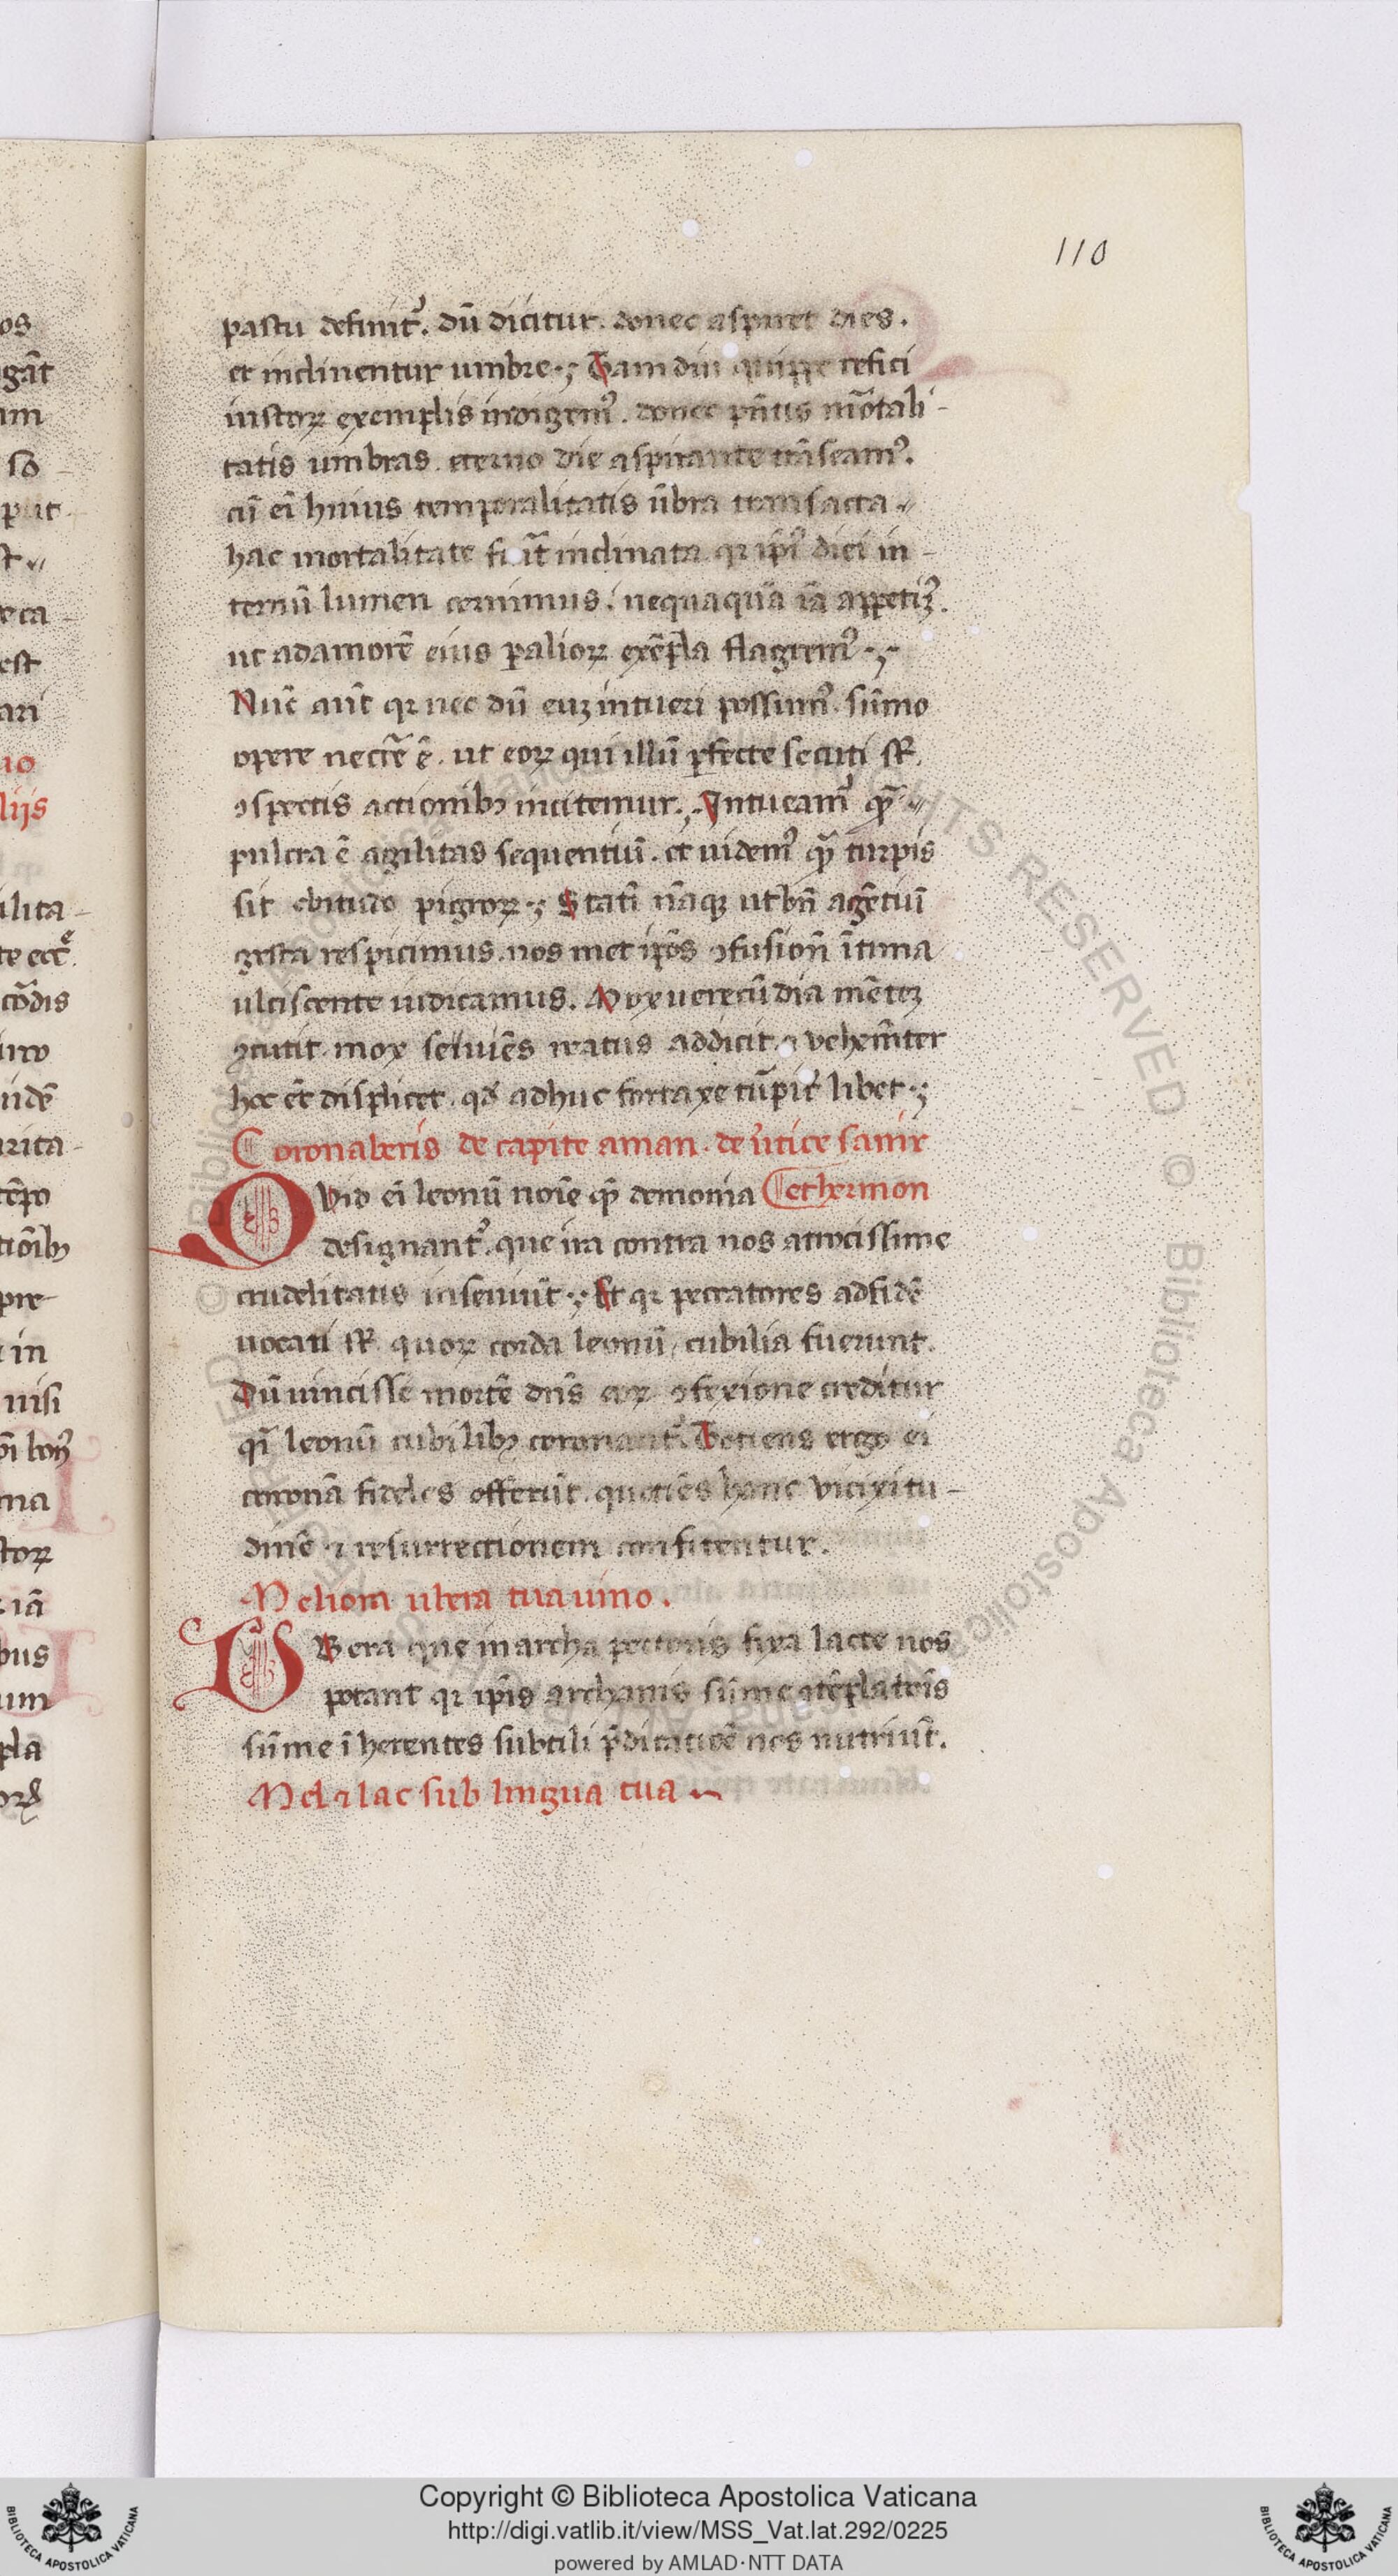 110
pastu definit᷒. dū dicitur. donec aspiret dies.
et inclinentur umbre.; Tam diu quippe refici
iustoꝝ exemplis indigem᷒. donec pn̄tis mōtali-
tatis umbras. eterno die aspirante trāseam᷒.
cū ei huius temporalitatis ūbra transacta
hac mortalitate fūit inclinata qꝛ ip̄i᷒ diei in-
ternū lumen cernimus. nequaquā iā appetim᷒.
ut ad amorē eius ꝑ alioꝝ exēpla flagrem᷒.,
Nūc aūt qꝛ nec dū euꝫ intueri possum᷒. sūmo
opere neccē ē. ut eoꝝ qui illū ꝑfecte secuti sꝶ.
ꝯspectis actionibꝫ incitemur., Intueam᷒ qꝫ̄
pulcra ē agilitas sequentiū. et uidem᷒ qꝫ̄ turpis
sit ebitudo pigroꝝ.; Statī nāqꝫ ut bn̄ agētiū
gesta respicimus. nos met ip̄os ꝯfusion̄ ītima
ulciscente iudicamus. Mox uerecūdia mēteꝫ
ꝯcutit. mox seuiēs reatus addicit. ⁊ vehem̄ter
hoc ēt displicet. qđ adhuc fortaxe tūpit̄ libet.;
Coronaberis de capite aman. de ūtice sanir
Qvid ei leonū noīe qꝫ̄ demonia et hermon
designant᷒. que ira contra nos atrocissime
crudelitatis inseuiūt.; Et qꝛ peccatores ad fidē
uocati sꝶ. quoꝝ corda leonū cubilia fuerunt.
Dū uincisse mortē dn̄s eoꝝ ꝯfexione creditur
qi᷒ leonū cubilibꝫ coronant᷒. Totiens ergo ei
coronā fideles offerūt. quotiēs hanc vicixitu-
dinē ⁊ resurrectionem confitentur.
Meliora ubera tua uino.
VBera que in archa pectoris fixa lacte nos
potant qꝛ ip̄is archanis sūme ꝯtēplatōis
sūme īherentes subtili p̄dicatiōe nos nutriūt.
Mel ⁊ lac sub lingua tua
Copyright © Biblioteca Apostolica Vaticana
http://digi.vatlib.it/view/MSS_Vat.lat.292/0225
powered by AMLAD·NTT DATA